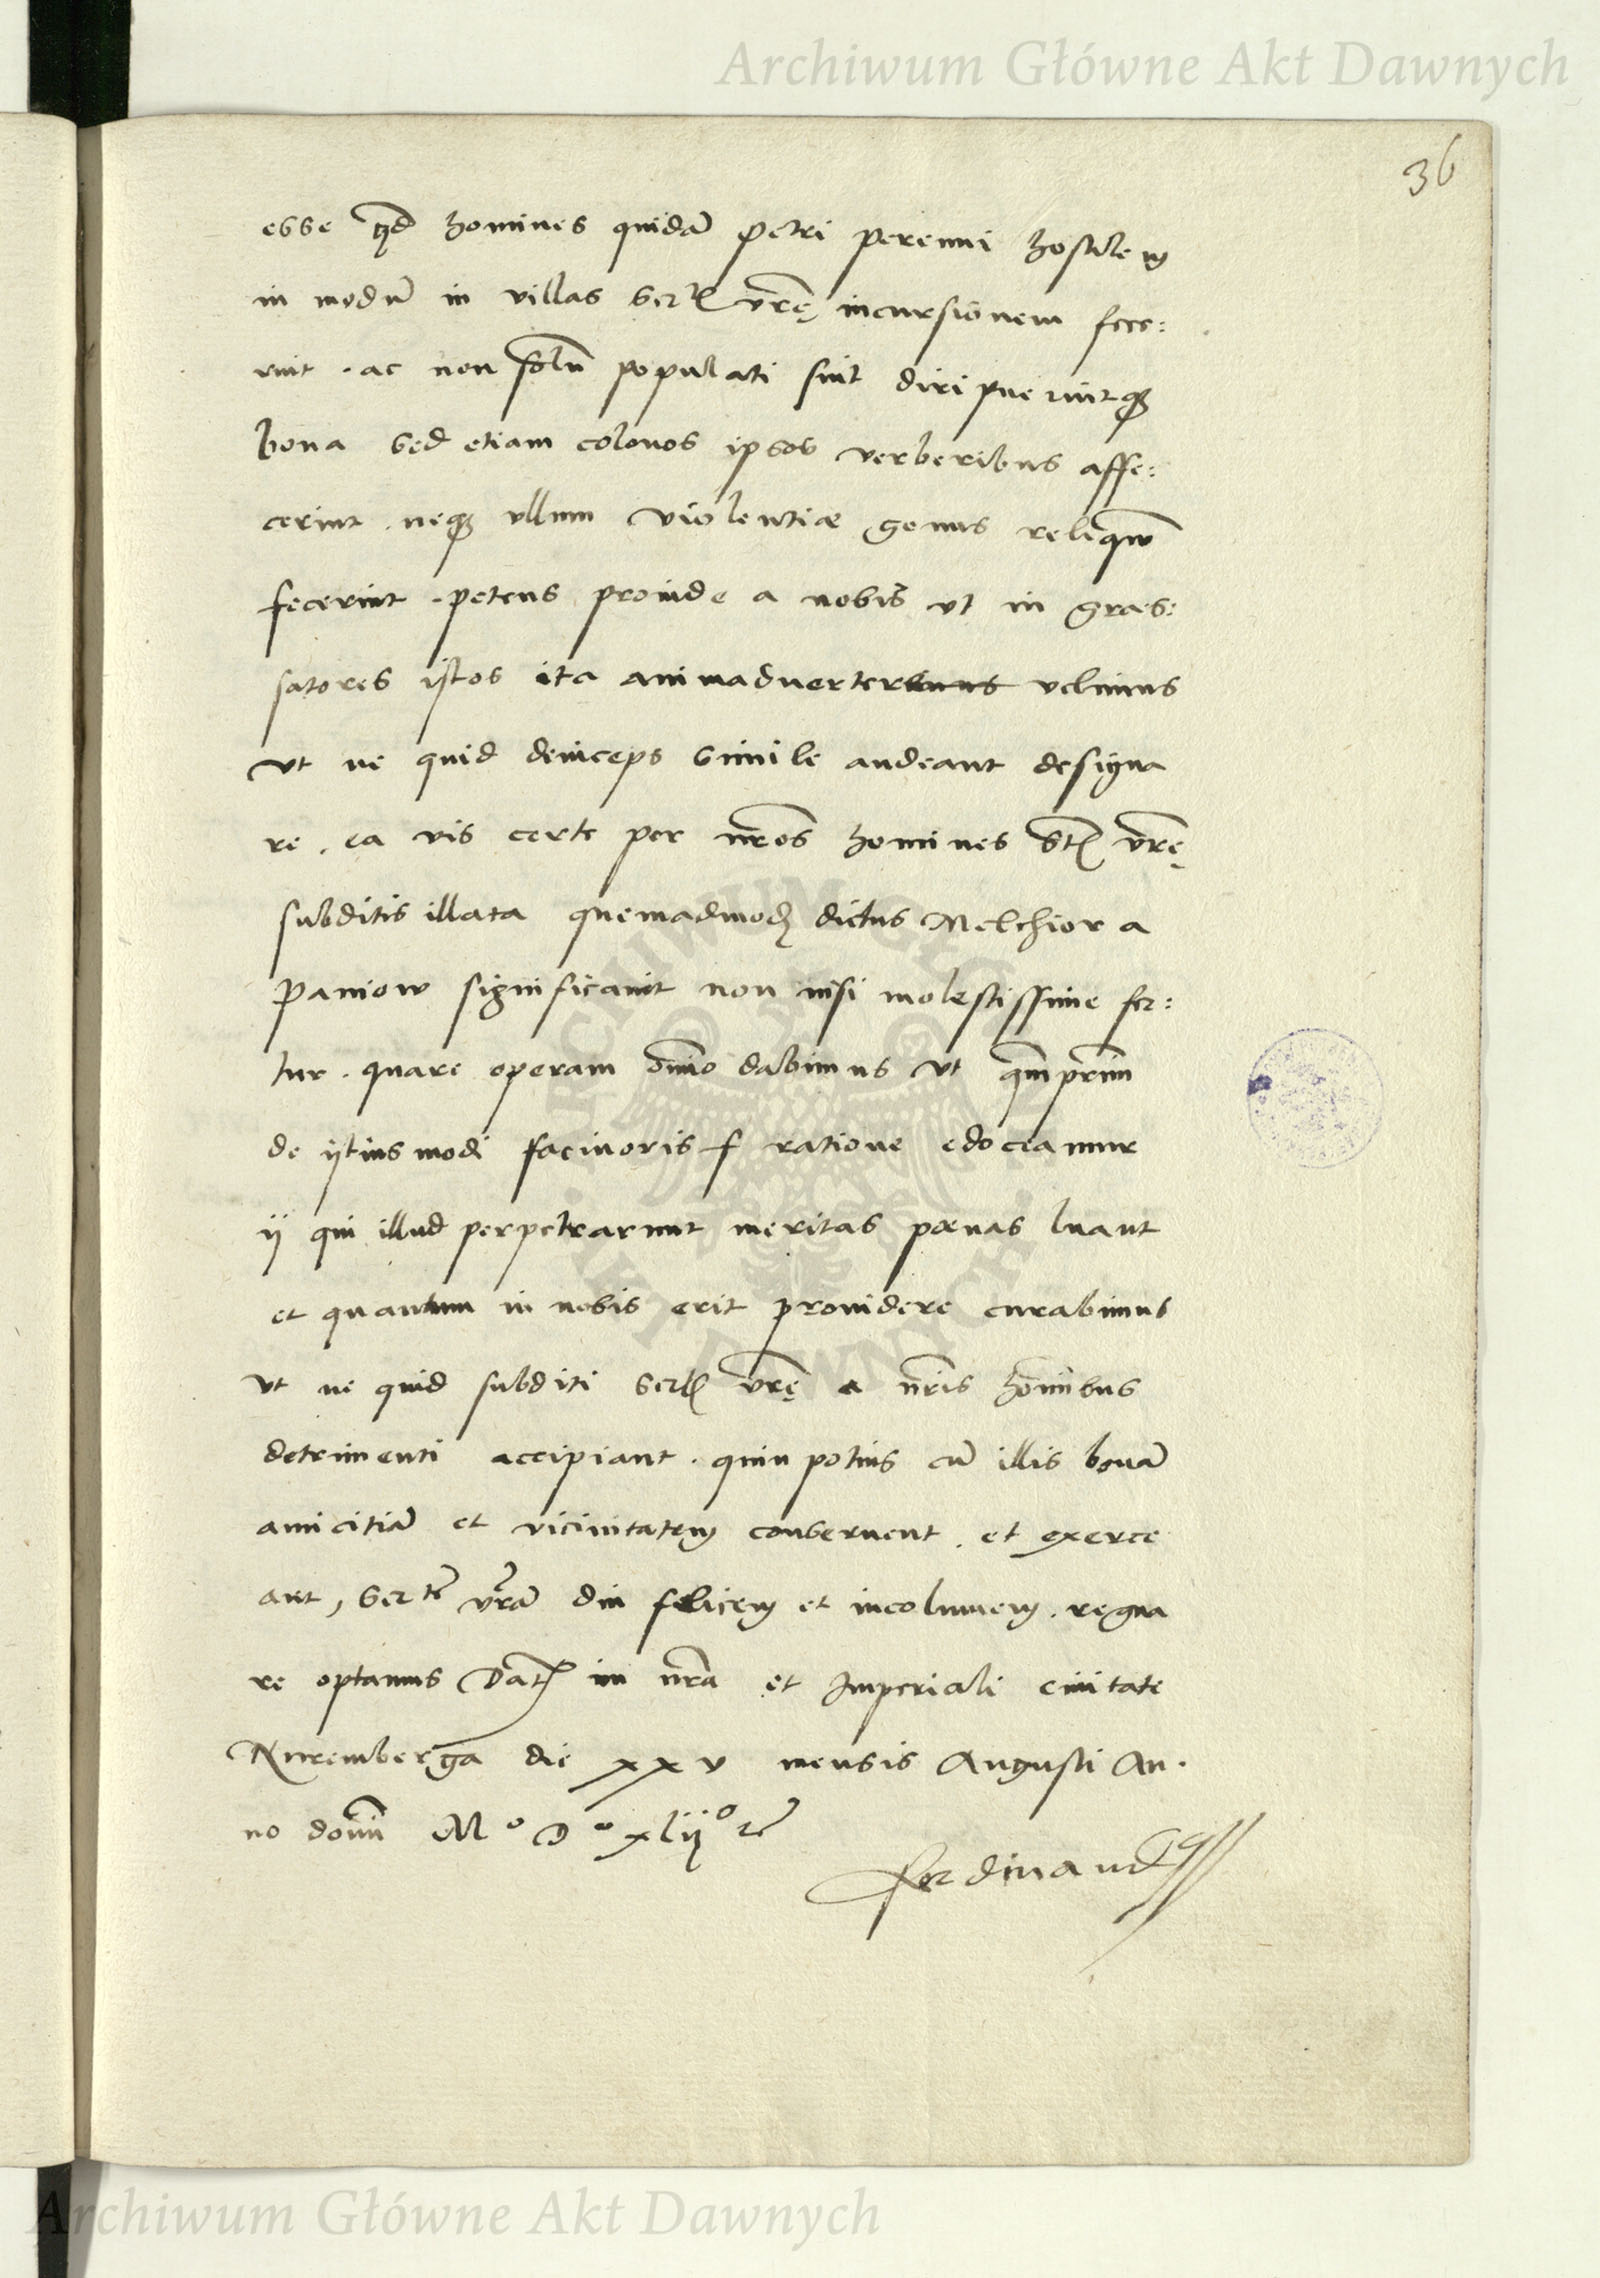 Archiwum Główne Akt Dawnych
36
esse q̄d homines quidā Petri Perenni hostilem
in modū in villas Sertis vrē incursionem fece:
rint . ac non solū populati sint diripuerintq;
bona sed etiam colonos ipsos verberibus affe:
cerint . neq; ullum violentiæ genus reliquū
fecerint . petens proinde a nobis ut in gras:
satores istos ita animaduertere velimus
ut ne quid deinceps simile audeant designa
re . ea vis certe per nr̄os homines Stis vrē
subditis illata quemadmod dictus Melchior a
Paniow significauit non nisi molestissime fer:
tur . quare operam om̄io dabimus ut q̄mprim̄
de istiusmodi facinoris ratione edoceamur
ij qui illud perpetrarunt meritas pœnas luant
et quantum in nobis erit prouidere curabimus
ut ne quid subditi Sertis vrē a nr̄is hom̄ibus
detrimenti accipiant . quin potius cū illis bonā
amicitiā et vicinitatem conseruent . et exerce
ant, Sertē vr̄ā diu felicem et incolumem . regna
re optamus Dat in nr̄a et Imperiali ciuitate
Nuremberga die xxv mensis Augusti An.
no domī Mº Dº xlijº
Ferdinandus
Archiwum Główne Akt Dawnych